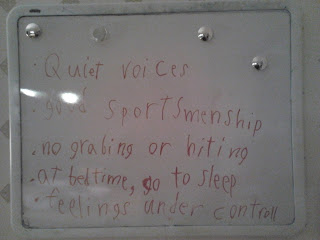 · Quiet voices
· good sportsmenship
· no grabing or hiting
· at bedtime, go to sleep
· feelings under controll